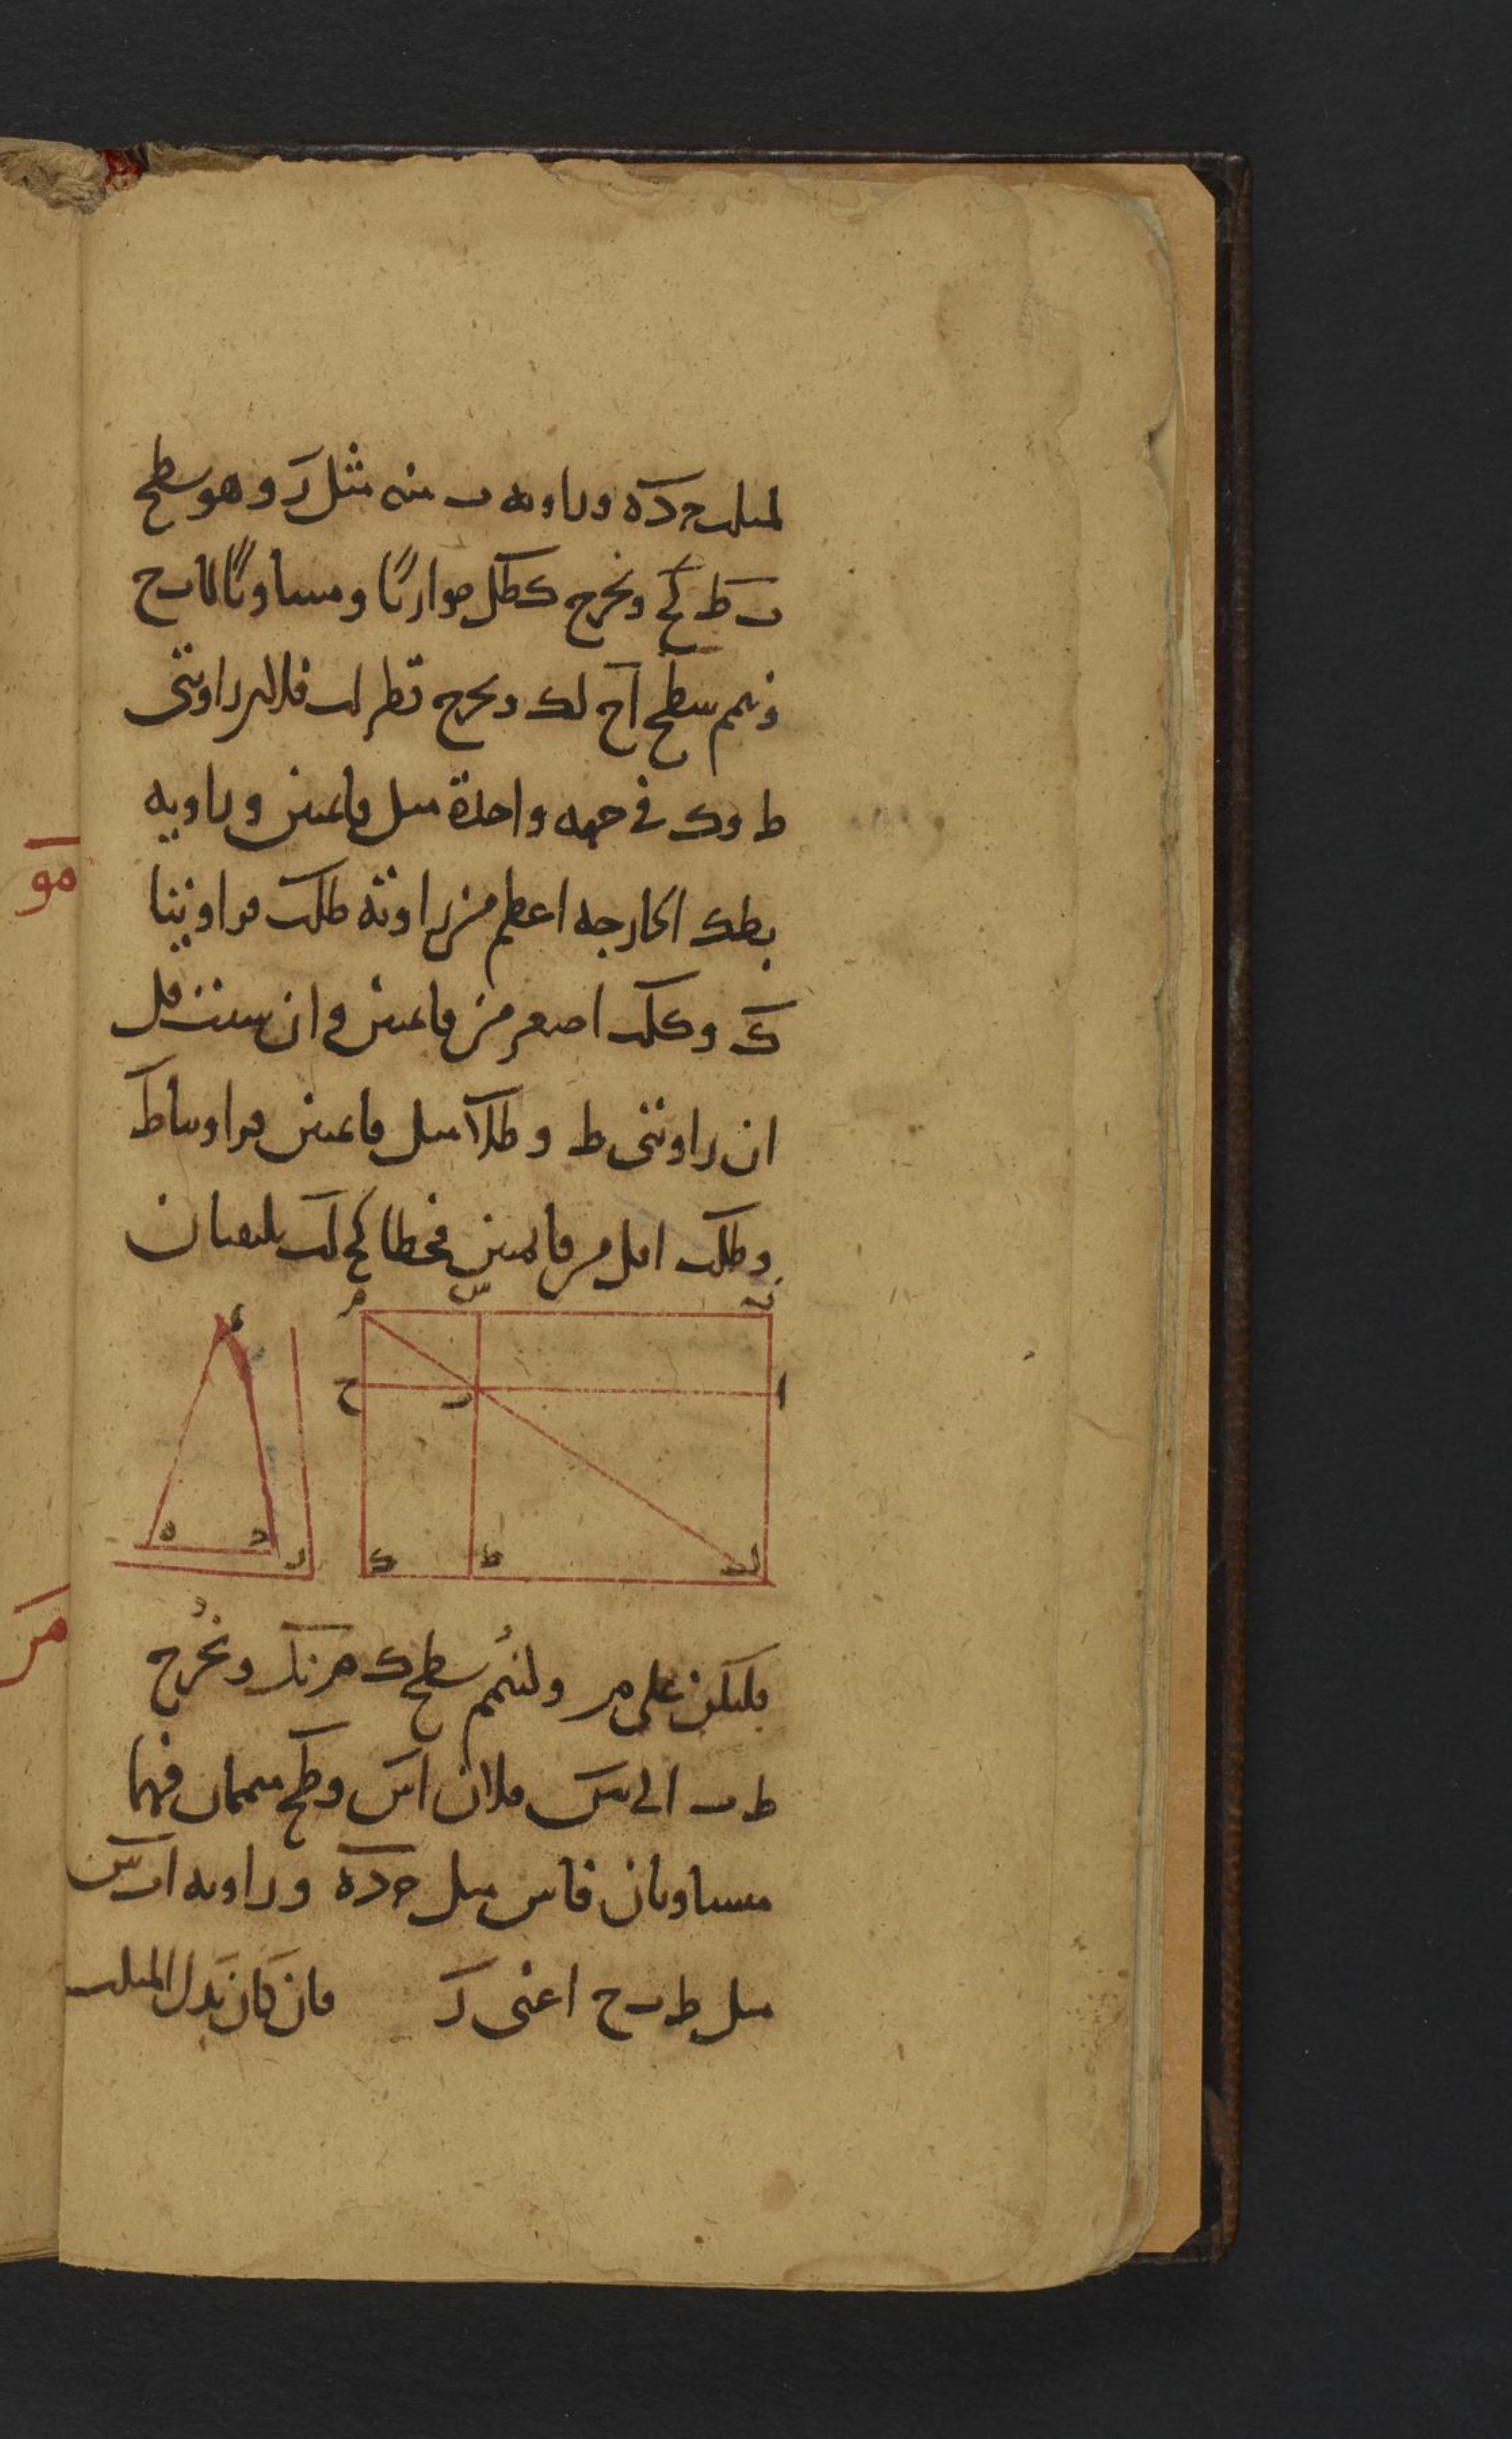 لمثلث حده وزاوية ب منه مثل ر وهو سطح
ب ط كح ونخرج كطل موازيا ومساويا لاب ح
ونتمم سطح اح لك ونخرج قطر لب فلان زاويتي
ط وك في جهة واحدة مثل قائمتين وزاوية
بطك الخارجة اعظم من زاوية طلب فزاويتا
ك وكلب اصغر من قائمتين وان شئت قل
ان زاويتي ط وطلا مثل قائمتين فزاويتا ط
وطلب اقل من قائمتين فخطا كح لب يلتقيان
ن س م
ا ب ح ح
ل ط ك ر د ه
فليكن على م ولنتمم سطح ك م ن ل ونخرج
ط ب الى س فلان اس وطح متممان فهما
متساويان فاس مثل حده وزاوية ابس
مثل طبح اعني ر فان كان بدل المثلث
مو
مز